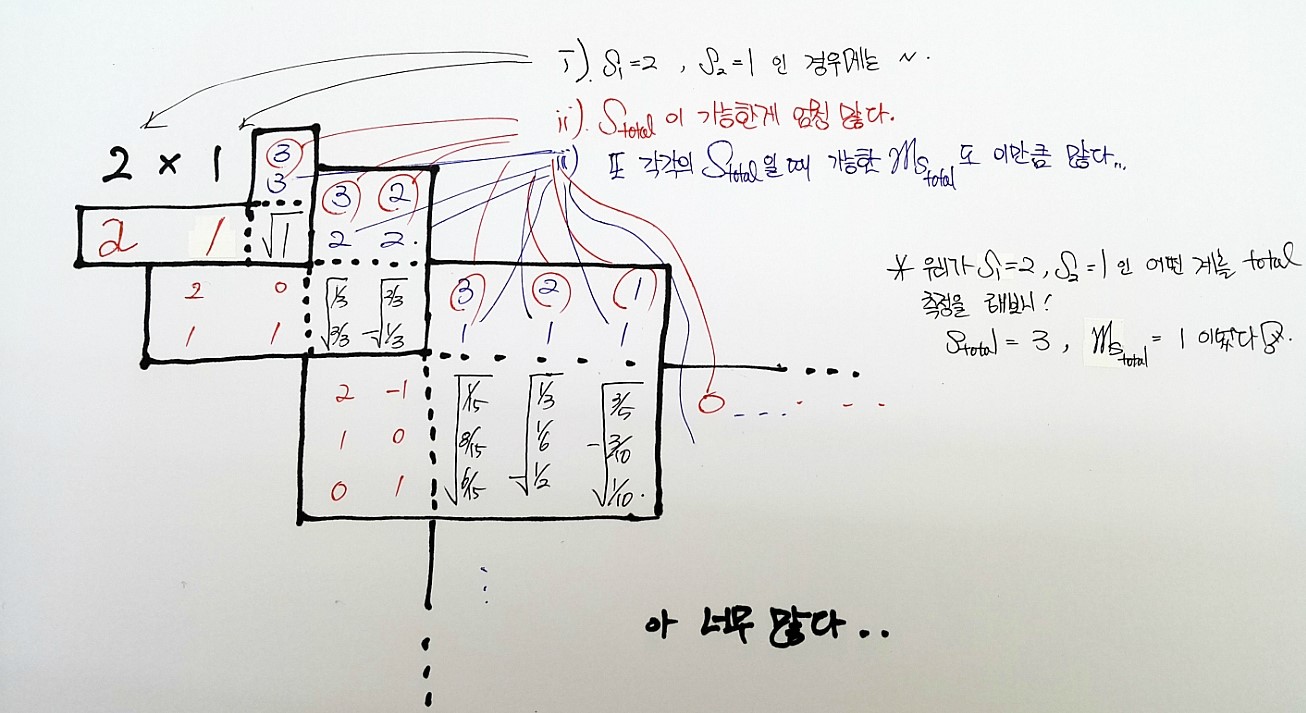 i). S₁=2 , S₂=1 인 경우에는 ~.
ii). S_total 이 가능한게 엄청 많다.
iii) 또 각각의 S_total일 때 가능한 m_S_total 도 이만큼 많다...
2 × 1
3
3
3 2
2 2.
2 1 √1
2 0 √1/3 √2/3
1 1 √2/3 -√1/3
3 2 1
1 1 1
2 -1 √1/15 √1/3 √3/5
1 0 √8/15 √1/6 -√3/10
0 1 √6/15 -√1/2 √1/10.
* 우리가 S₁=2, S₂=1 인 어떤 계를 total
측정을 해보니!
S_total = 3, m_S_total = 1 이었다
아 너무 많다..